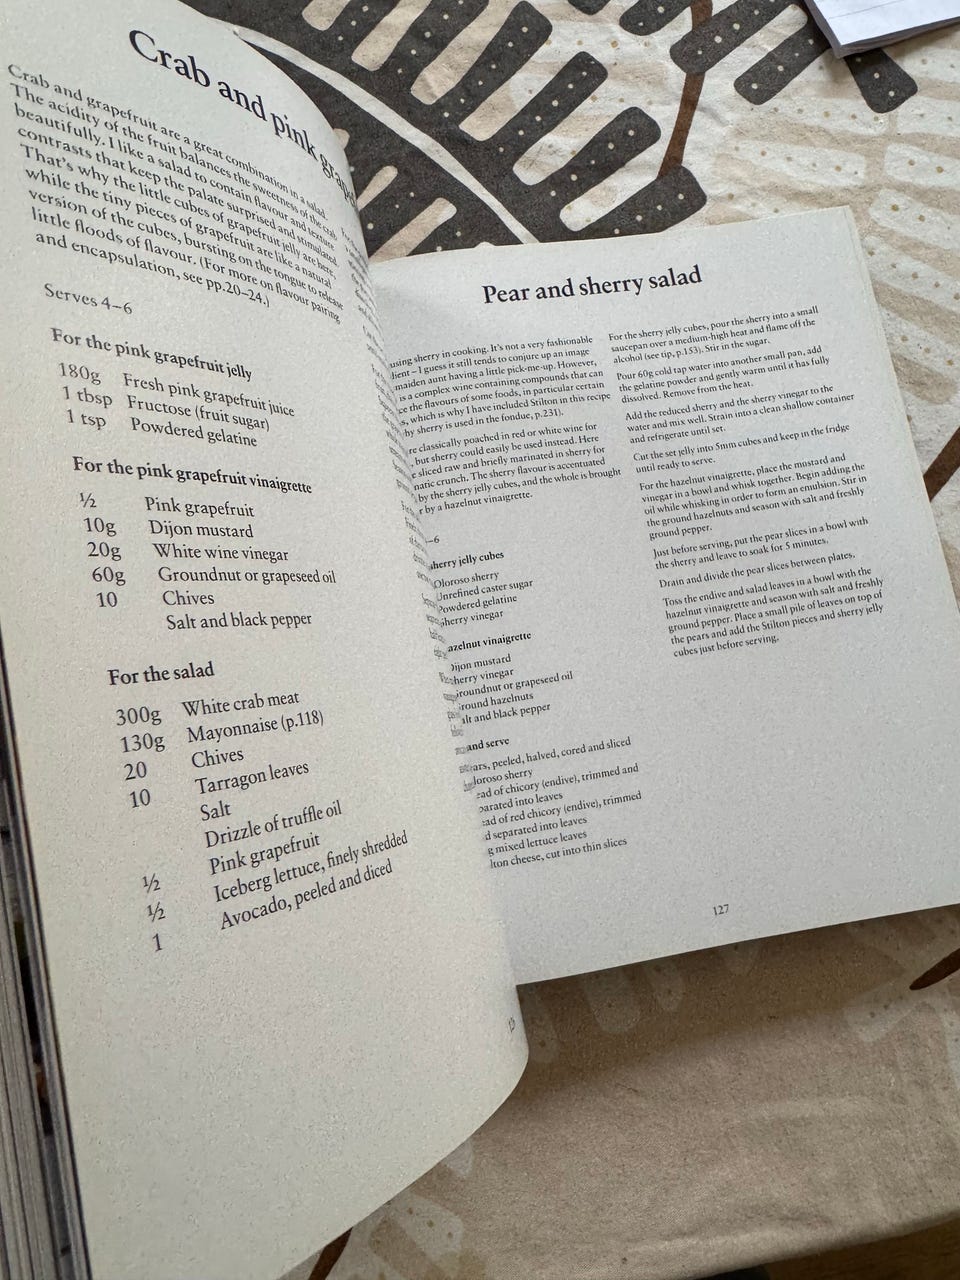 Crab and pink
Crab and grapefruit are a great combination in a salad.
The acidity of the fruit balances the sweetness of the crab
beautifully. I like a salad to contain flavour and texture
contrasts that keep the palate surprised and stimulated.
That's why the little cubes of grapefruit jelly are here,
while the tiny pieces of grapefruit are like a natural
version of the cubes, bursting on the tongue to release
little floods of flavour. (For more on flavour pairing
and encapsulation, see pp.20–24.)
Serves 4–6
For the pink grapefruit jelly
180g Fresh pink grapefruit juice
1 tbsp Fructose (fruit sugar)
1 tsp Powdered gelatine
For the pink grapefruit vinaigrette
½ Pink grapefruit
10g Dijon mustard
20g White wine vinegar
60g Groundnut or grapeseed oil
10 Chives
Salt and black pepper
For the salad
300g White crab meat
130g Mayonnaise (p.118)
20 Chives
10 Tarragon leaves
Salt
Drizzle of truffle oil
½ Pink grapefruit
½ Iceberg lettuce, finely shredded
1 Avocado, peeled and diced
Pear and sherry salad
using sherry in cooking. It's not a very fashionable
– I guess it still tends to conjure up an image
maiden aunt having a little pick-me-up. However,
is a complex wine containing compounds that can
the flavours of some foods, in particular certain
which is why I have included Stilton in this recipe
sherry is used in the fondue, p.231).
classically poached in red or white wine for
but sherry could easily be used instead. Here
sliced raw and briefly marinated in sherry for
crunch. The sherry flavour is accentuated
by the sherry jelly cubes, and the whole is brought
by a hazelnut vinaigrette.
–6
sherry jelly cubes
Oloroso sherry
Unrefined caster sugar
Powdered gelatine
Sherry vinegar
vinaigrette
Dijon mustard
Sherry vinegar
Groundnut or grapeseed oil
Ground hazelnuts
Salt and black pepper
and serve
peeled, halved, cored and sliced
sherry
of chicory (endive), trimmed and
into leaves
of red chicory (endive), trimmed
separated into leaves
mixed lettuce leaves
cheese, cut into thin slices
For the sherry jelly cubes, pour the sherry into a small
saucepan over a medium-high heat and flame off the
alcohol (see tip, p.153). Stir in the sugar.
Pour 60g cold tap water into another small pan, add
the gelatine powder and gently warm until it has fully
dissolved. Remove from the heat.
Add the reduced sherry and the sherry vinegar to the
water and mix well. Strain into a clean shallow container
and refrigerate until set.
Cut the set jelly into 5mm cubes and keep in the fridge
until ready to serve.
For the hazelnut vinaigrette, place the mustard and
vinegar in a bowl and whisk together. Begin adding the
oil while whisking in order to form an emulsion. Stir in
the ground hazelnuts and season with salt and freshly
ground pepper.
Just before serving, put the pear slices in a bowl with
the sherry and leave to soak for 5 minutes.
Drain and divide the pear slices between plates.
Toss the endive and salad leaves in a bowl with the
hazelnut vinaigrette and season with salt and freshly
ground pepper. Place a small pile of leaves on top of
the pears and add the Stilton pieces and sherry jelly
cubes just before serving.
127